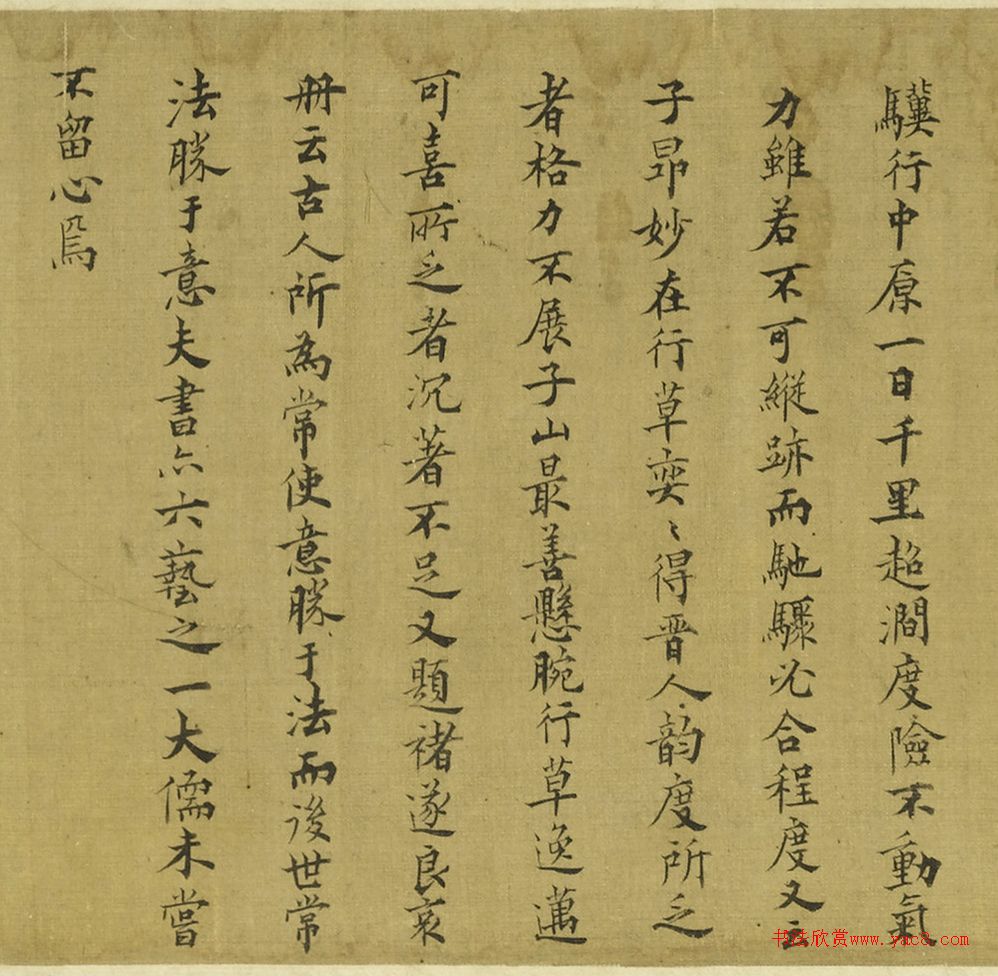 驥行中原一日千里超澗度險不動氣
力雖若不可縱跡而馳驟必合程度又云
子昂妙在行草奕〻得晉人韵度所乏
者格力不展子山最善懸腕行草逸邁
可喜所乏者沉著不足又題褚遂良哀
册云古人所為常使意勝于法而後世常
法勝于意夫書亦六藝之一大儒未嘗
不留心焉
书法欣赏www.yac8.com